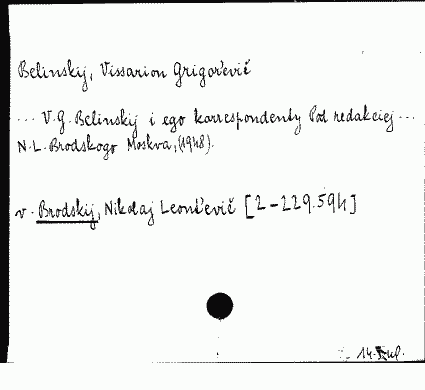 Belinskij, Vissarion Grigor'evič
... V.G. Belinskij i ego korrespondenty Pod redakciej ...
N.L. Brodskogo Moskva, (1948).
v. Brodskij, Nikolaj Leont'evič [2-229.594]
14.